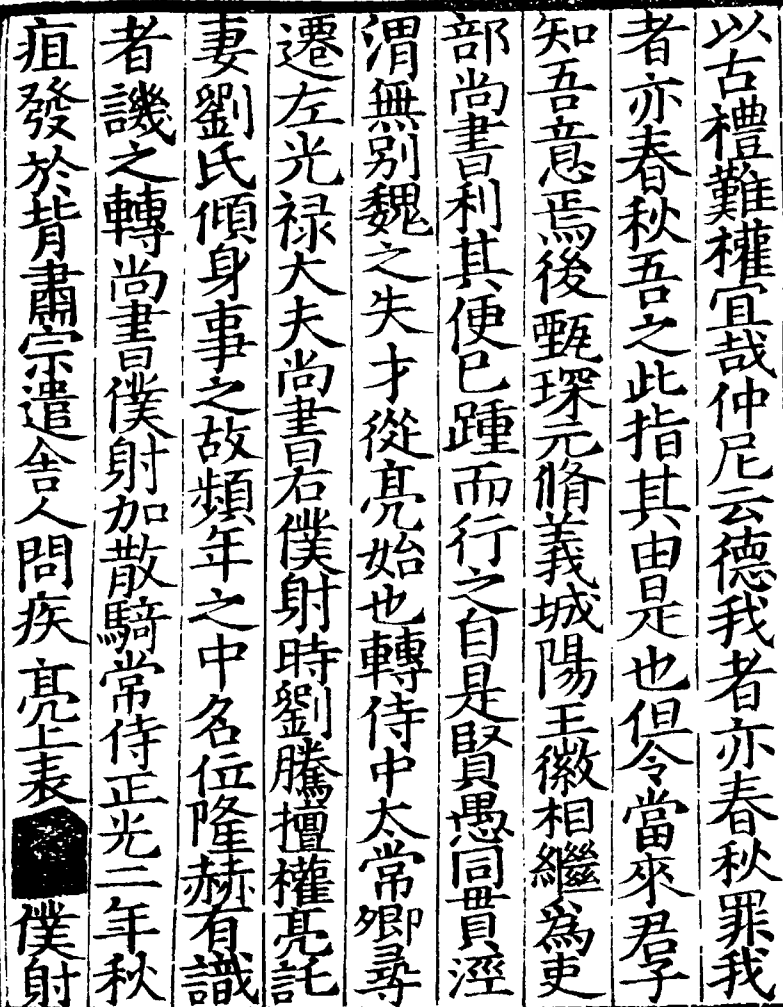 以古禮難權宜哉仲尼云德我者亦春秋罪我
者亦春秋吾之此指其由是也但令當來君子
知吾意焉後甄琛元脩義城陽王徽相繼爲吏
部尚書利其便已踵而行之自是賢愚同貫涇
渭無别魏之失才從亮始也轉侍中太常卿尋
遷左光禄大夫尚書右僕射時劉騰擅權亮託
妻劉氏傾身事之故頻年之中名位隆赫有識
者譏之轉尚書僕射加散騎常侍正光二年秋
疽發於背肅宗遣舍人問疾亮上表僕射